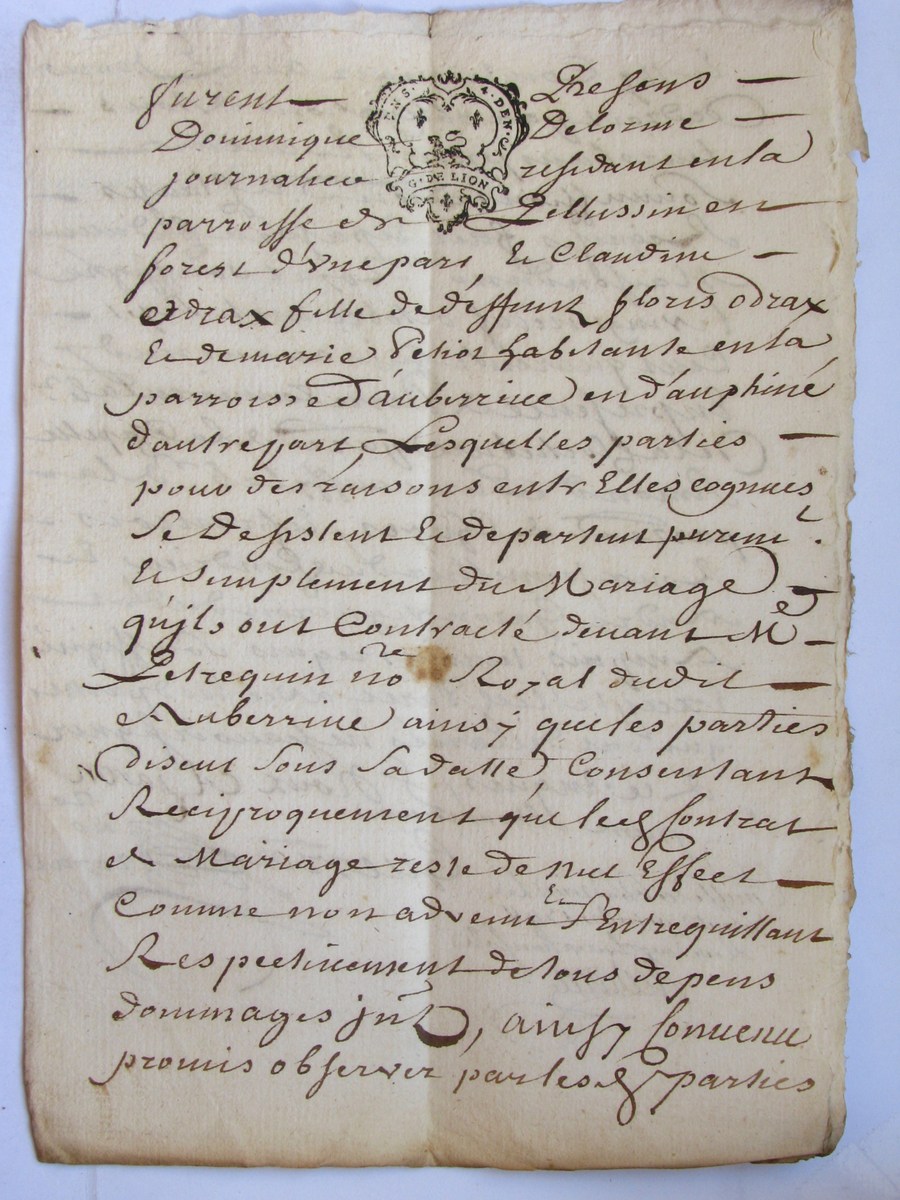 furent Presens
Dominique Delorme
journalier residant en la
parroisse de Pellussin en
forest d'vne part, Et Claudine
odrax fille de deffunt floris odrax
Et de marie Petiot habitante en la
parroisse d'auberriue en d'auphiné
d'autre part, Lesquelles parties
pour des raisons entr Elles cognues
Se Desistent Et departent puremt.
Et Simplement du Mariage
qu'jls ont Contracté deuant Me
Petrequin nore Royal dudit
Auberriue ainsy que les parties
disent Sous Sa datte Consentant
Reciproquement que led Contrat
de Mariage reste de nul Effect
Comme non advenu Et S'Entrequittant
Respectiuement de tous depens
dommages jnt, ainsy Conuenu
promis observer par lesd parties
4. DEN.
G. DE LION